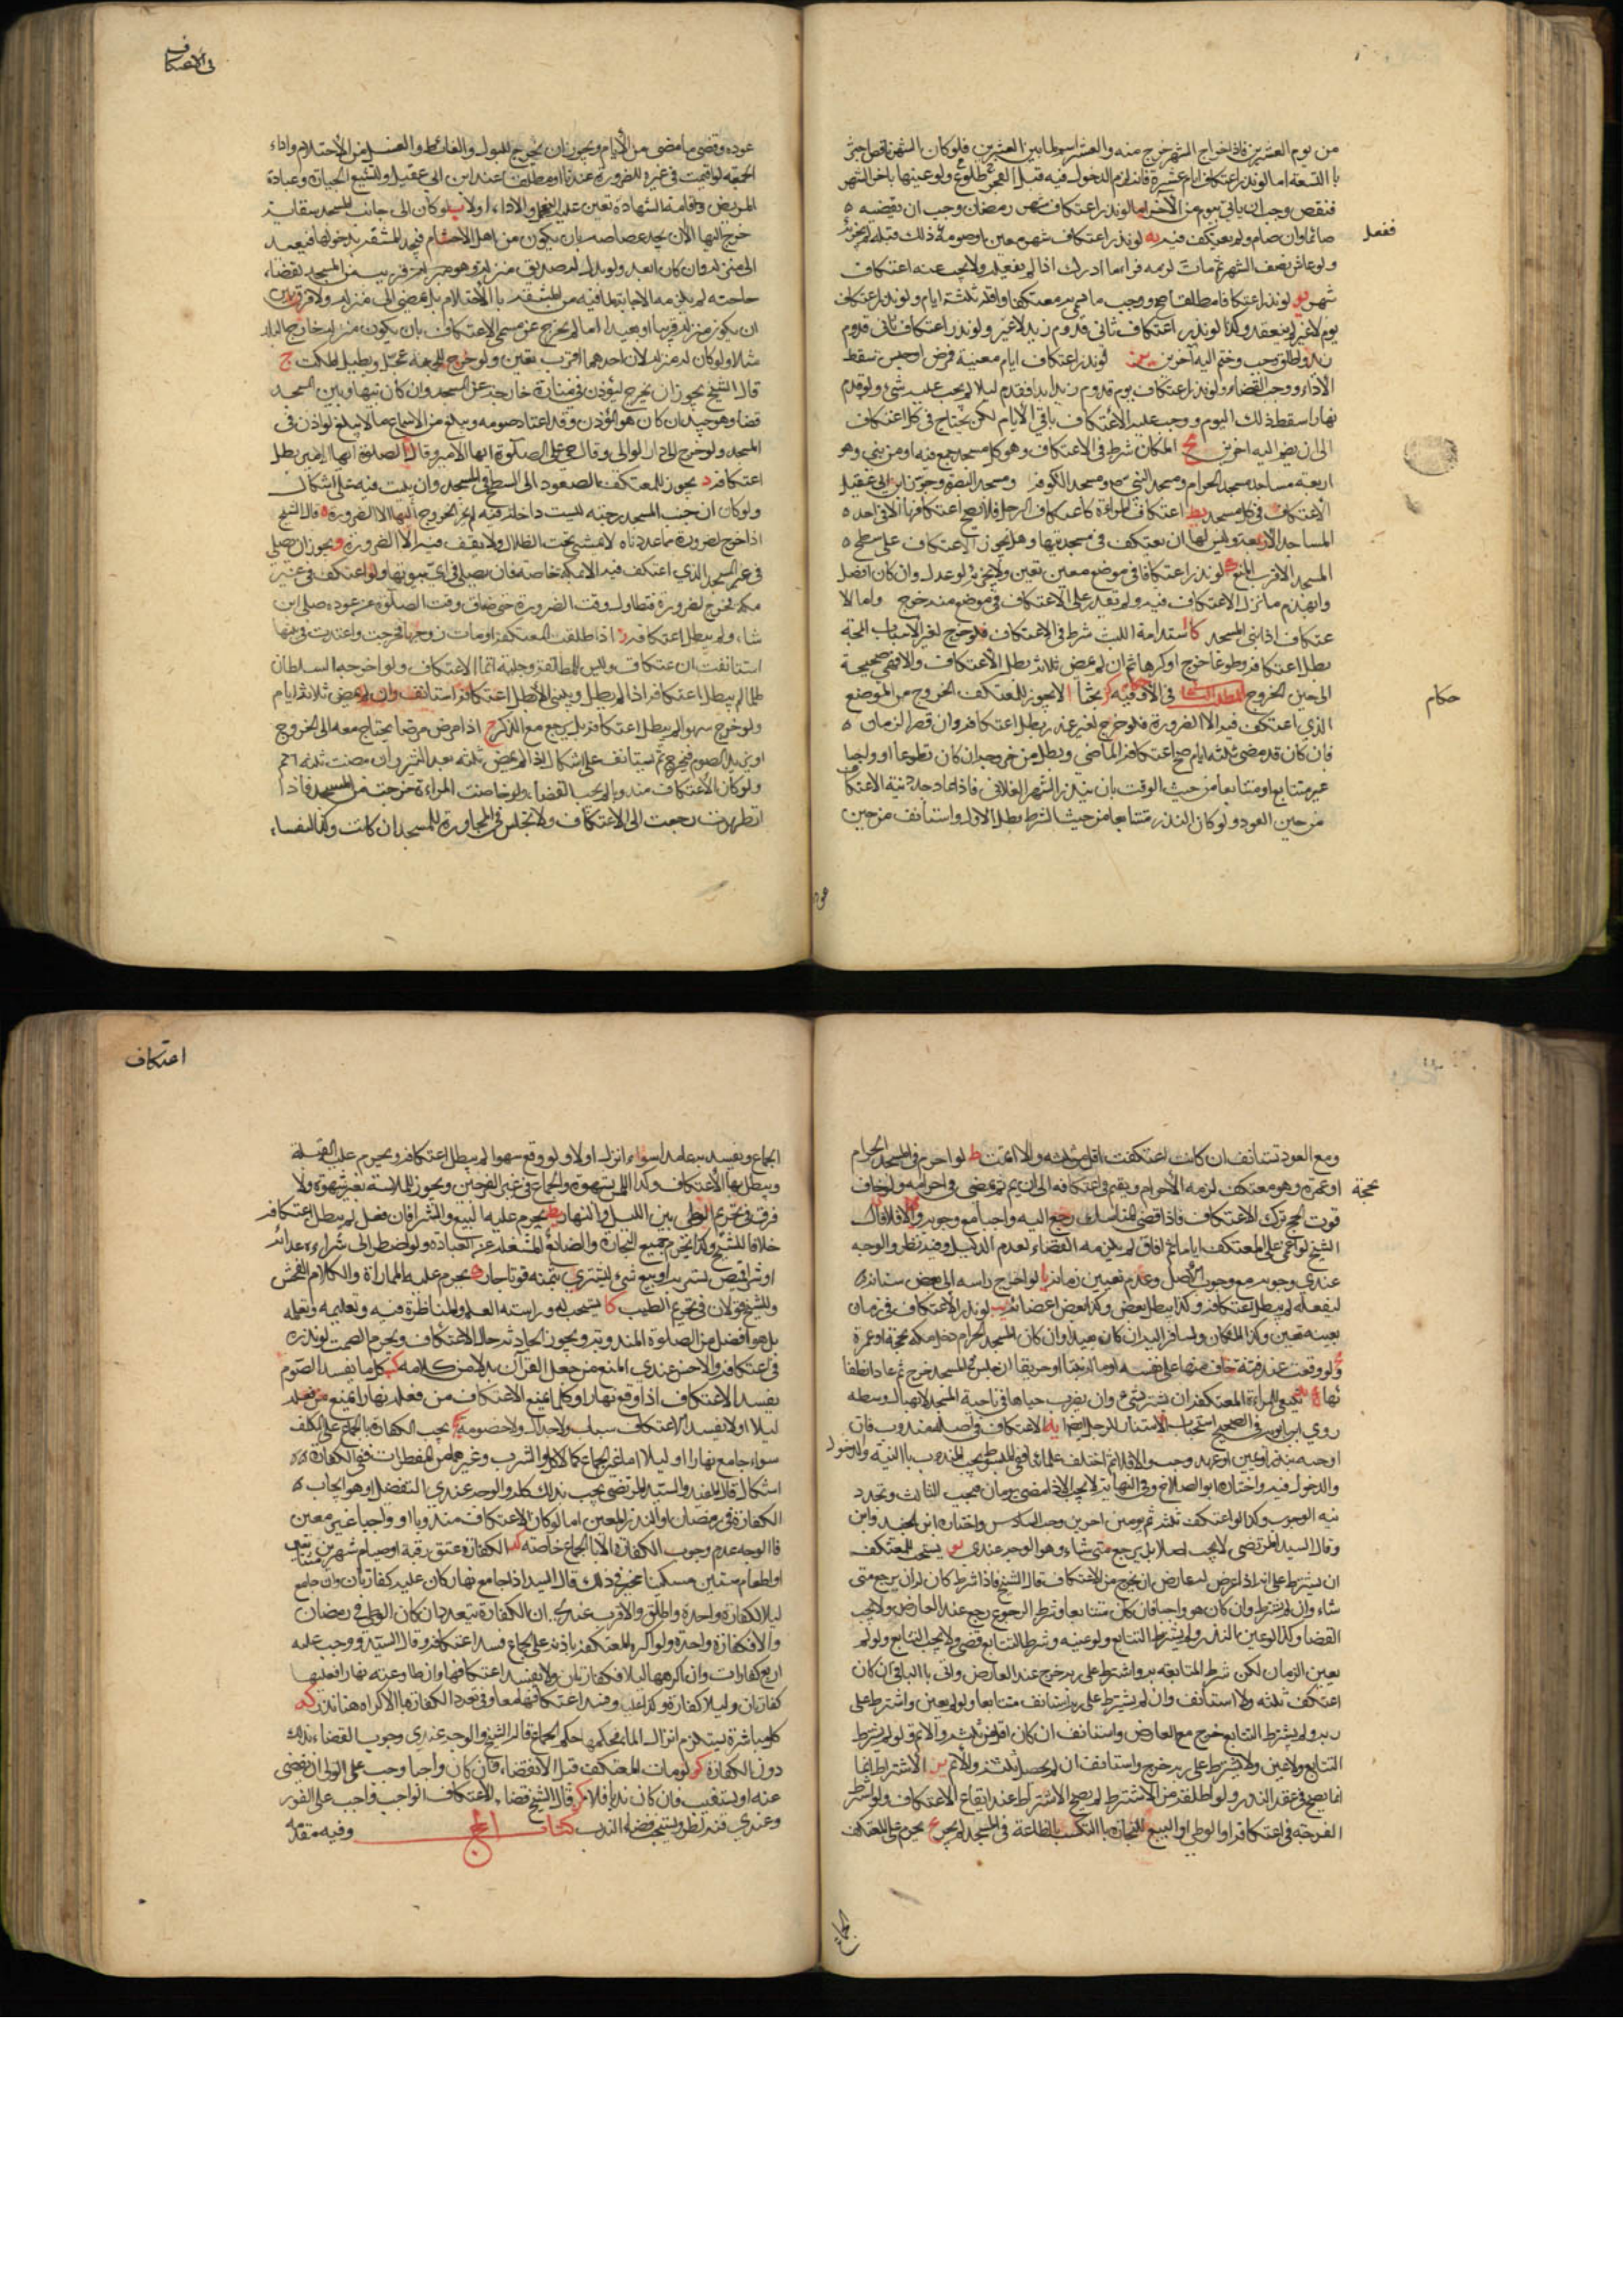 من يوم العشرين فاذا خرج الشهر خرج منه والعشر اسم لما بين العشرين فلو كان الشهر ناقصا جزى
با التسعة اما لو نذر اعتكاف ايام عشرة فانه يلزم الدخول فيه قبل الفجر طلوع ولو عينها باخر الشهر
فنقص وجب ان ياتي بيوم من الاخر لو نذر اعتكاف شهر رمضان وجب ان يقضيه
صائما وان صام ولم يعتكف فيه يه لو نذر اعتكاف شهر معين او صومه ذلك قبله لم يجزئه
ففعل
ولو عاش نصف الشهر ثم مات لزمه فيما ادرك اذا لم يفعله ولا يجب عنه اعتكاف
شهر يو لو نذر اعتكافا مطلقا صح ووجب ما يسمى به معتكفا واقله ثلثة ايام ولو نذر اعتكاف
يوم لا غير لم ينعقد وكذا لو نذر اعتكاف ثاني قدوم زيد لا غير ولو نذر اعتكاف ثاني قدوم
زيد واطلق وجب وضم اليه آخرين لو نذر اعتكاف ايام معينة فمرض او حبس سقط
الاداء ووجب القضاء ولو نذر اعتكاف يوم قدوم زيد ابدا فقدم ليلا لم يجب عليه شيء ولو قدم
نهارا سقط ذلك اليوم ووجب عليه الاعتكاف باقي الايام لكن يحتاج في كل اعتكاف
الى ان يضم اليه اخرين يح المكان شرط في الاعتكاف وهو كل مسجد جمع فيه او من نبي وهو
اربعة مساجد مسجد الحرام ومسجد النبي ص ومسجد الكوفة ومسجد البصرة وجوز ابن ابي عقيل
الاعتكاف في كل مسجد يط اعتكاف المراءة كاعتكاف الرجل فلا يصح اعتكافها الا في احد
المساجد الاربعة وليس لها ان تعتكف في مسجد بيتها وهل يجوز الاعتكاف على سطح
المسجد الاقرب المنع ك لو نذر اعتكافا في موضع معين تعين ولا يجزئه لو عدل وان كان افضل
وانهدم مأنزل الاعتكاف فيه ولم تعذر على الاعتكاف في موضع منه خرج واما الا
عتكاف اذا بنى المسجد كا استدامة اللبث شرط في الاعتكاف فلو خرج لغير الاسباب المبيحة
بطل اعتكافه وطوعا خرج او كرها ثم ان لم يمض ثلاثة بطل الاعتكاف والا فهي صحيحة
الى حين الخروج المطلب الثالث في الاحكام وفيه كز بحثا ا لا يجوز للمعتكف الخروج من الموضع
حكام
الذي اعتكف فيه الا الضرورة فلو خرج لغير عذر بطل اعتكافه وان قصر الزمان
فان كان قد مضى ثلثة ايام صح اعتكافه الماضي وبطل من خروجه ان كان تطوعا او واجبا
غير متتابع او متتابعا من حيث الوقت بان ينذر الشهر الفلاني فاذا عاد جدد نية الاعتكاف
من حين العود ولو كان النذر متتابعا من حيث الشرط بطل الاول واستانف من حين
عوده
في الاعتكاف
عوده وقضى ما مضى من الايام ويجوز ان يخرج للبول والغائط والغسل من الاحتلام واداء
الجمعة لو اقيمت في غيره للضرورة عندنا او مطلقا عند ابن ابي عقيل ولتشييع الجنازة وعيادة
المريض واقامة الشهادة تعين عليه التحمل والاداء اولا ب لو كان الى جانب المسجد سقاية
خرج اليها الا ان يجد غضاضة بان يكون من اهل الاحتشام فيجد المشقة بدخولها فيعدل
الى منزله وان كان ابعد ولو بذل له صديق منزله وهو قريب من المسجد لقضاء
حاجته لم يلزمه الاجابة لما فيه من المشقة با الاحتشام بل يمضي الى منزله ولا فرق بين
ان يكون منزله قريبا او بعيدا اما لم يخرج عن مسمى الاعتكاف بان يكون منزله خارج البلد
مثلا ولو كان له منزلان احدهما اقرب تعين ولو خرج للجمعة عجل ولا يطيل المكث ج
قال الشيخ يجوز ان يخرج ليؤذن في منارة خارجة عن المسجد وان كان بينها وبين المسجد
فضاء وهو جيد ان كان هو المؤذن وقد اعتاد صومه ويبلغ من الاسماع ما لا يبلغ لو اذن في
المسجد ولو خرج الى دار الوالي وقال حي على الصلوة ايها الامير وقال الصلوة ايها الامير بطل
اعتكافه د يجوز للمعتكف الصعود الى السطح في المسجد وان يبيت فيه على اشكال
ولو كان الى جنب المسجد رحبة ليست داخلة فيه لم يجز الخروج اليها الا الضرورة ه قال الشيخ
اذا خرج لضرورة مما عددناه لا يمشي تحت الظلال ولا يقف فيه الا الضرورة و يجوز ان يصلي
في غير المسجد الذي اعتكف فيه الا مكة خاصة فان يصلي في اي بيوتها ولو اعتكف في غير
مكة فخرج لضرورة فتطاول وقت الضرورة حتى ضاق وقت الصلوة عن عوده صلى اين
شاء ولم يبطل اعتكافه ز اذا طلقت المعتكفة او مات زوجها فخرجت واعتدت في بيتها
استانفت ان عتكاف وليس للمطلقة رجعية اتمام الاعتكاف ولو اخرجه السلطان
ظلما لم يبطل اعتكافه اذا لم يطل ويبني والا بطل اعتكافه استانف وان لم يمض ثلاثة ايام
ولو خرج سهوا لم يبطل اعتكافه بل يرجع مع الذكر ح اذا مرض مرضا يحتاج معه الى الخروج
او يزيد الصوم فيخرج ثم يستانف على اشكال اذا لم يمض ثلثة بعد البرء وان مضت ثلثة اتم
ولو كان الاعتكاف مندوبا لم يجب القضاء ولو حاضت المراءة خرجت من المسجد فاذا
تطهرت رجعت الى الاعتكاف ولا تجلس في المجاورة للمسجد ان كانت وكذا النفساء
ومع العود تستانف ان كانت اعتكفت اقل من ثلثه والا اتمت ط لو احرم في المسجد الحرام
بحجة
او عمرة وهو معتكف لزمه الاحرام ويقيم في اعتكافه الى ان يتم ثم يمضي في احرامه ولو خاف
فوت الحج ترك الاعتكاف فاذا قضى المناسك رجع اليه واجبا مع وجوبه والا فلا قال
الشيخ لو اغمي على المعتكف اياما ثم افاق لم يلزمه القضاء لعدم الدليل وفيه نظر والوجه
عندي وجوبه مع وجوب الاصل وعدم تعيين زمانه يا لو اخرج راسه الى بعض نسائه
ليغسله لم يبطل اعتكافه وكذا يبطل بعض وكذا بعض اعضائه يب لو نذر الاعتكاف في زمان
بعينه تعين وكذا المكان ولسافر اليه ان كان بعيدا وان كان المسجد الحرام دخل مكه بحجة او عمرة
ولو وقعت عنده فتنة خاف منها على نفسه او ماله نهبا او حريقا ان جلس في المسجد خرج ثم عاد انطفا
ئها يج ينبغي للمراءة المعتكفة ان تستتر بشيء وان يضرب خباها في ناحية المسجد لانهما لا وسطه
روي ابن ابويه في الصحيح استحباب الاستتار للرجل ايضا يد الاعتكاف في اصله مندوب فان
اوجبه بنذر او يمين او عهد وجب والا فلا ثم اختلف علمائنا ففي المبسوط يجب المندوب با النية والدخول
والدخول فيه واختاره ابو الصلاح وفي النهاية لا يجب الا اذا مضى يومان فيجب الثالث وتجدد
نية الوجوب وكذا لو اعتكف ثلثة ثم يومين اخرين وجب السادس واختاره ابن الجنيد وابن
وقال السيد المرتضى لا يجب اصلا بل يرجع متى شاء وهو الوجه عندي يه يستحب للمعتكف
ان يشترط على ربه اذا عرض له عارض ان يخرج من الاعتكاف قال الشيخ فاذا شرط كان له ان يرجع متى
شاء وان لم يشترط وان كان هو واجبا فان كان متتابعا وشرط الرجوع رجع عند العارض ولا يجب
القضاء وكذا لو عين بالنذر ولم يشترط التتابع ولو عينه وشرط التتابع قضى ولا يجب التتابع ولو لم
يعين الزمان لكن شرط المتابعه به واشترط على ربه خرج عند العارض واتى با الباقي ان كان
اعتكف ثلثه والا استانف وان لم يشترط على ربه استانف متتابعا ولو لم يعين واشترط على
ربه ولم يشترط التتابع خرج مع العارض واستانف ان كان اقل من ثلثه والا اتم ولو لم يشترط
التتابع ولا عين ولا شرط على ربه خرج واستانف ان لم يحصل ثلثه والا اتم يو الاشتراط انما
انما يصح في عقد النذر ولو اطلقه من الاشتراط لم يصح الاشتراط عند ايقاع الاعتكاف ولو اشترط
الفرجة في اعتكافه او الوطي او البيع للتجارة با التكسب بالصناعة في المسجد لم يجز يح يحرم على المعتكف
الجماع
اعتكاف
الجماع ويفسد به عامدا سواء انزل اولا ولو وقع سهوا لم يبطل اعتكافه ويحرم عليه القبلة
ويبطل بها الاعتكاف وكذا اللمس بشهوة والجماع في غير الفرجين ويجوز الملامسة بغير شهوة ولا
فرق في تحريم الوطي بين الليل والنهار يط يحرم عليه البيع والشراء فان فعل لم يبطل اعتكافه
خلافا للشيخ وكذا تحرم جميع التجارة والصنايع المشغلة عن العبادة ولو اضطر الى شراء غدائه
او شراء قميص يستتر به او بيع شيء ليشتري بثمنه قوتا جاز ك يحرم عليه المماراة والكلام الفحش
وللشيخ قولان في تحريم الطيب كا يستحب له دراسة العلم والمناظرة فيه وتعليمه وتعلمه
بل هو افضل من الصلوة المندوبة ويجوز الحديث حال الاعتكاف ويحرم الصمت لو نذره
في اعتكافه والاحسن عندي المنع من جعل القرآن بدلا من كلامه كب كلما يفسد الصوم
يفسد الاعتكاف اذا وقع نهارا وكلما يمنع الاعتكاف من فعله نهارا يمنع من فعله
ليلا اولا يفسد الاعتكاف سباب ولا جدال ولا خصومة كج يجب الكفارة بالجماع على المعتكف
سواء جامع نهارا او ليلا اما غير الجماع كالاكل والشرب وغيرهما من المفطرات ففي الكفارة
اشكال قال المفيد والسيد المرتضى يجب بذلك كله والوجه عندي التفصيل وهو ايجاب
الكفارة في رمضان او النذر المعين اما لو كان الاعتكاف مندوبا او واجبا غير معين
فا الوجه عدم وجوب الكفارة الا با الجماع خاصة كد الكفارة عتق رقبة او صيام شهرين متتابعين
او اطعام ستين مسكينا مخير في ذلك قال السيد اذا جامع نهارا كان عليه كفارتان وان جامع
ليلا كفارة واحدة واطلق والاقرب عندي ان الكفارة يتعدد ان كان الوطي في رمضان
والا فكفارة واحدة ولو اكره المعتكفة باذنه على الجماع فسد اعتكافه وقال السيد ووجب عليه
اربع كفارات وان اكرهها ليلا فكفارتان ولا يفسد اعتكافها وان طاوعته نهارا فعليها
كفارتان وليلا كفارة وكذا عليه وفسد اعتكافهما معا وفي تعدد الكفارة با الاكراه هنا نظر كه
كل مباشرة يستلزم انزال الماء فحكمها حكم الجماع قاله الشيخ والوجه عندي وجوب القضاء بذلك
دون الكفارة كو لو مات المعتكف قبل الانقضاء فان كان واجبا وجب على الولي ان يقضي
عنه او يستنيب فان كان ندبا فلا كز قال الشيخ قضاء الاعتكاف الواجب واجب على الفور
وعندي فيه نظر ويستحب قضاء الندب كتاب الحج وفيه مقدمه